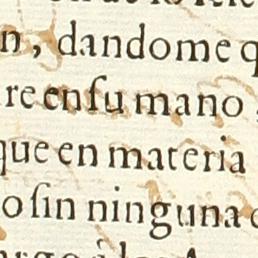 n, dandome q
re en ſu mano,
que en materia
o ſin ninguna